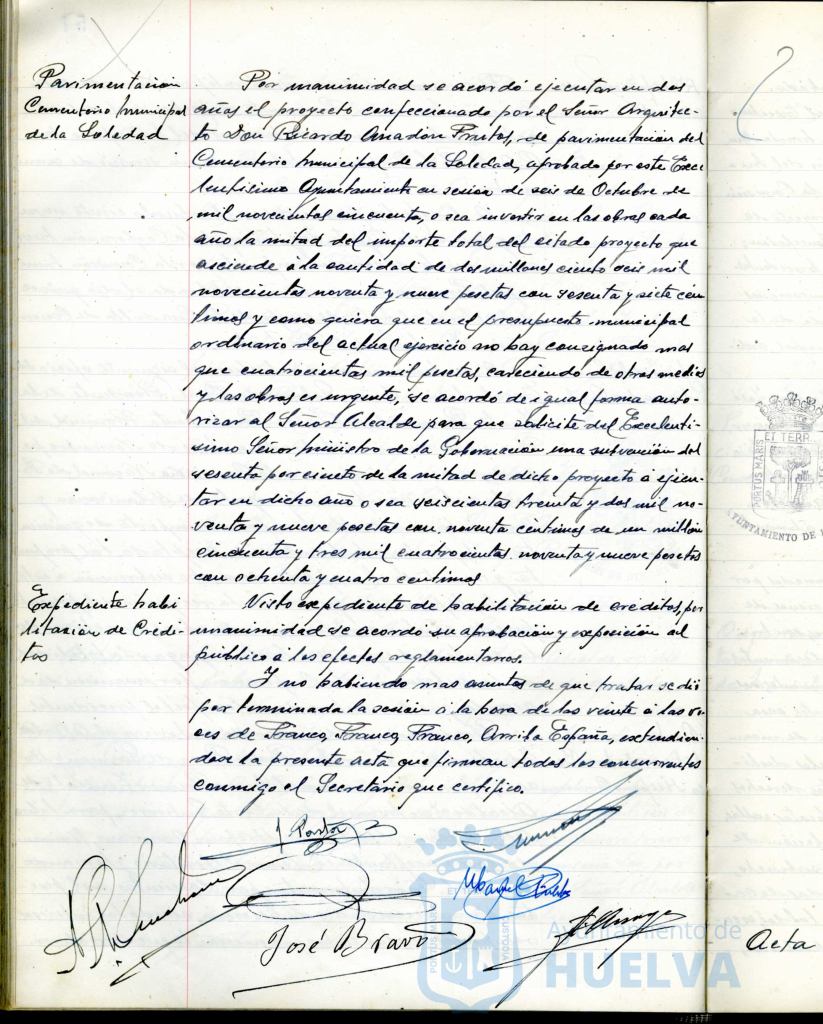 Pavimentación
Cementerio municipal
de la Soledad
Por unanimidad se acordó ejecutar en dos
años el proyecto confeccionado por el Señor Arquitec-
to Don Ricardo Anadón Frutos, de pavimentación del
Cementerio municipal de la Soledad, aprobado por este Exce
lentisimo Ayuntamiento en sesión de seis de Octubre de
mil novecientos cincuenta, o sea invertir en las obras cada
año la mitad del importe total del citado proyecto que
asciende á la cantidad de dos millones ciento seis mil
novecientas noventa y nueve pesetas con sesenta y siete cén
timos y como quiera que en el presupuesto municipal
ordinario del actual ejercicio no hay consignado mas
que cuatrocientas mil pesetas, careciendo de otros medios
y las obras es urgente, se acordó de igual forma auto-
rizar al Señor Alcalde para que solicite del Excelenti-
simo Señor ministro de la Gobernación una subvención del
sesenta por ciento de la mitad de dicho proyecto á ejecu-
tar en dicho año o sea seiscientas treinta y dos mil no-
venta y nueve pesetas con noventa céntimos de un millón
cincuenta y tres mil cuatrocientas noventa y nueve pesetas
con ochenta y cuatro centimos
Expediente habi
litación de Crédi-
tos
Visto expediente de habilitación de creditos, por
unanimidad se acordó su aprobación y exposición al
público á los efectos reglamentarios.
Y no habiendo mas asuntos de que tratar se dió
por terminada la sesión á la hora de las veinte á las vo-
ces de Franco, Franco, Franco, Arriba España, extendien-
dose la presente acta que firman todos los concurrentes
conmigo el Secretario que certifico.
José Bravo
Acta
PORTUS MARIS
ET TERR
AYUNTAMIENTO DE
Ayuntamiento de
HUELVA